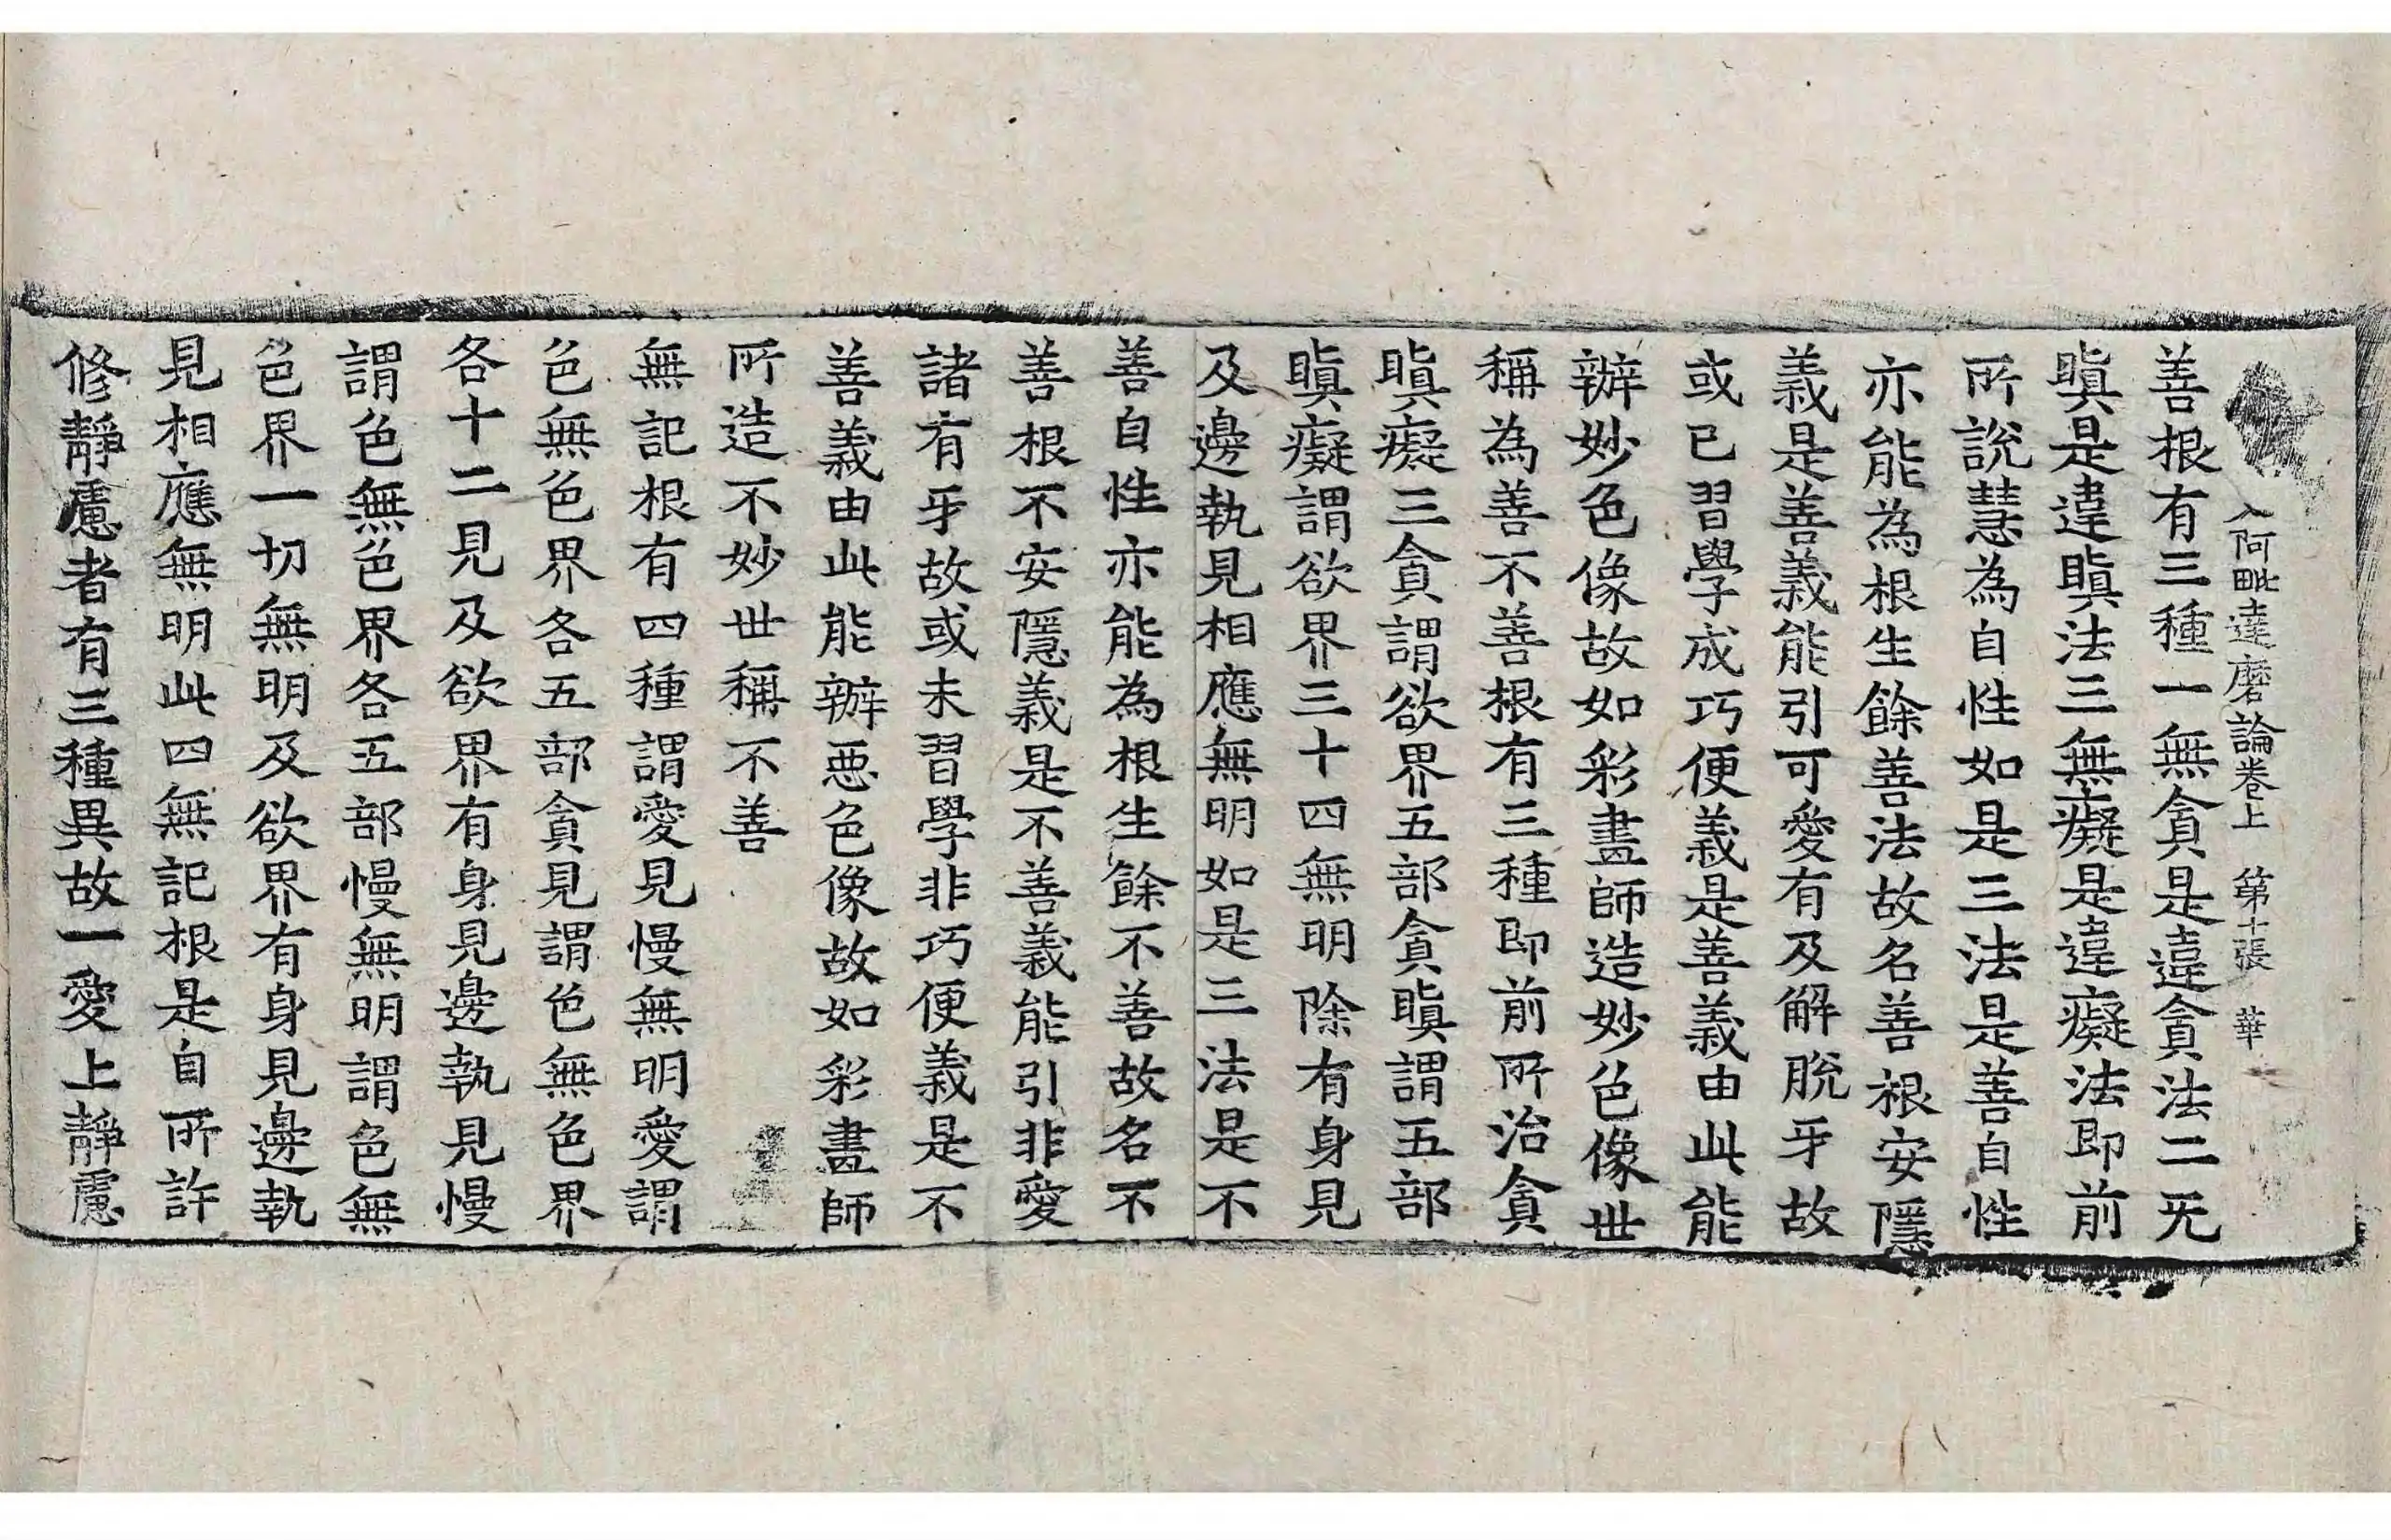 入阿毗達磨論卷上 第十張 華
善根有三種一無貪是違貪法二无
瞋是違瞋法三無癡是違癡法即前
所說慧為自性如是三法是善自性
亦能為根生餘善法故名善根安隱
義是善義能引可愛有及解脫牙故
或已習學成巧便義是善義由此能
辦妙色像故如彩畫師造妙色像世
稱為善不善根有三種即前所治貪
瞋癡三貪謂欲界五部貪瞋謂五部
瞋癡謂欲界三十四無明除有身見
及邊執見相應無明如是三法是不
善自性亦能為根生餘不善故名不
善根不安隱義是不善義能引非愛
諸有牙故或未習學非巧便義是不
善義由此能辦惡色像故如彩畫師
所造不妙世稱不善
無記根有四種謂愛見慢無明愛謂
色無色界各五部貪見謂色無色界
各十二見及欲界有身見邊執見慢
謂色無色界各五部慢無明謂色無
色界一切無明及欲界有身見邊執
見相應無明此四無記根是自所許
修靜慮者有三種異故一愛上靜慮